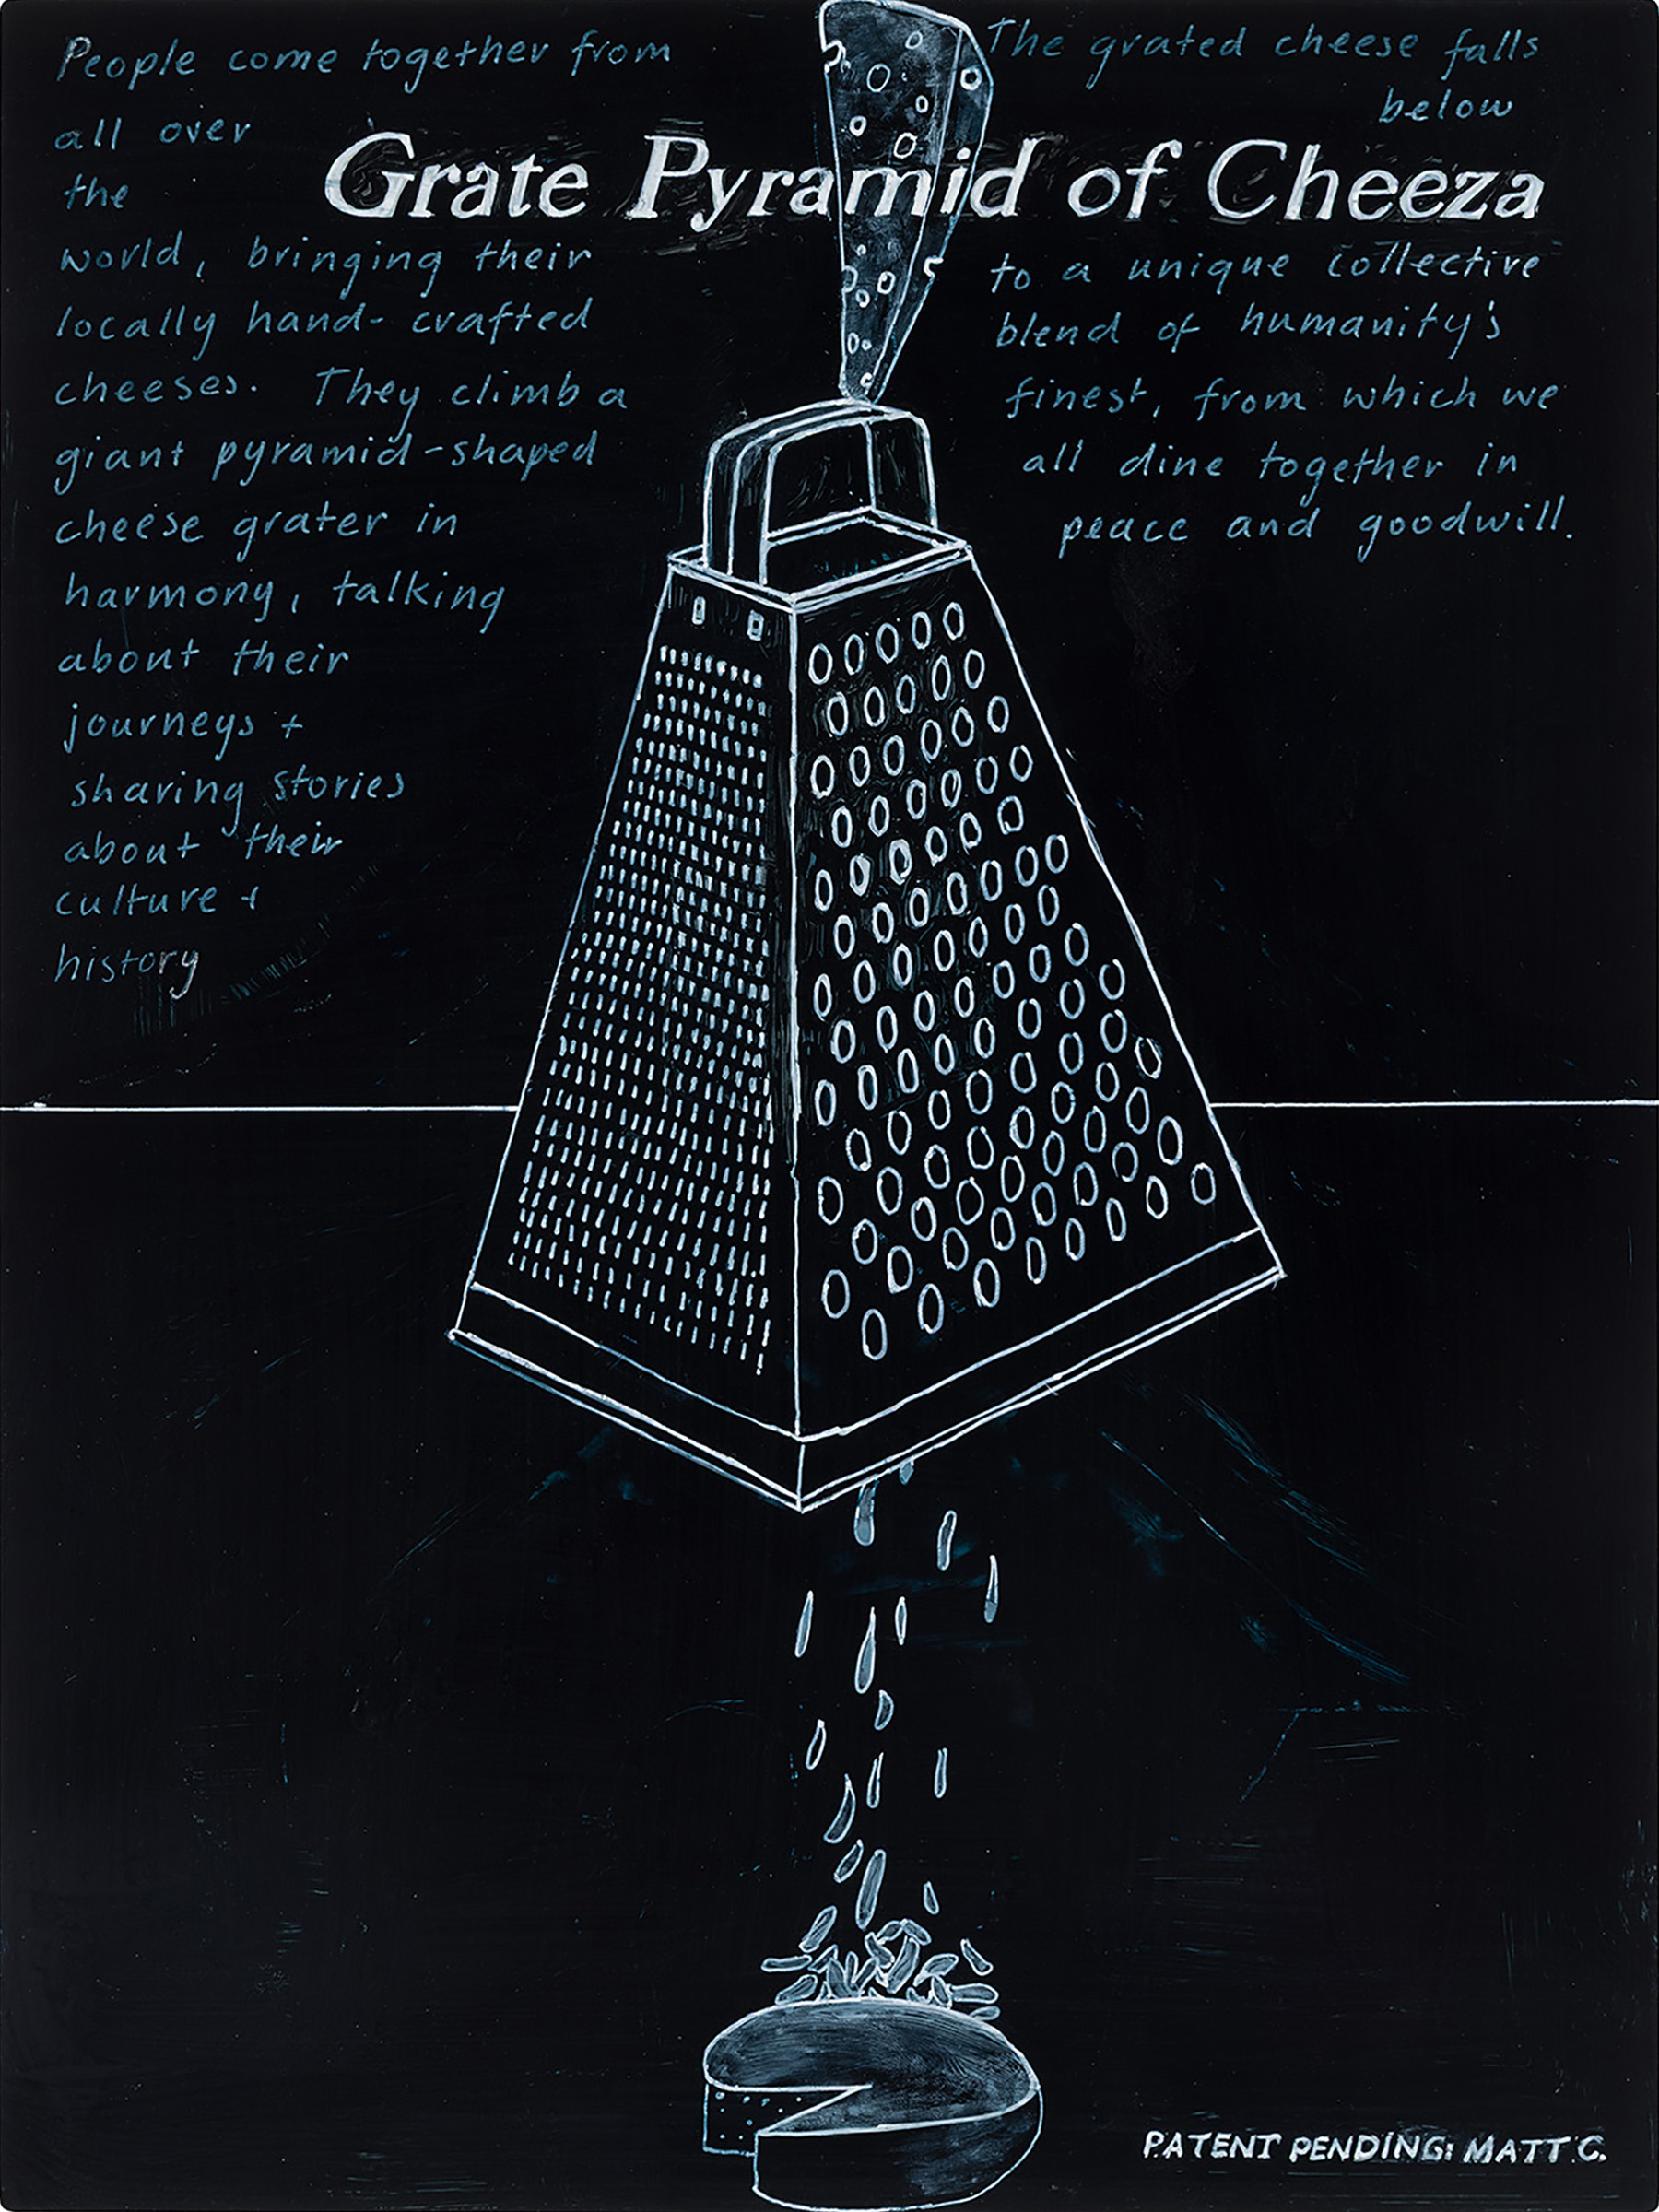 Grate Pyramid of Cheeza
People come together from
all over
the
world, bringing their
locally hand-crafted
cheeses. They climb a
giant pyramid-shaped
cheese grater in
harmony, talking
about their
journeys +
sharing stories
about their
culture +
history
The grated cheese falls
below
to a unique collective
blend of humanity's
finest, from which we
all dine together in
peace and goodwill.
PATENT PENDING: MATT C.